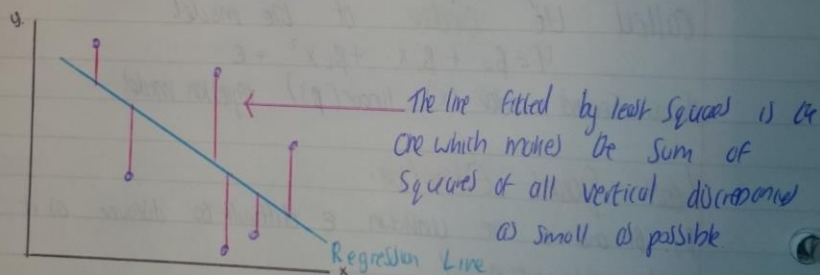 y.
The line fitted by least squares is the
one which makes the sum of
squares of all vertical discrepancies
as small as possible
Regression Line
x